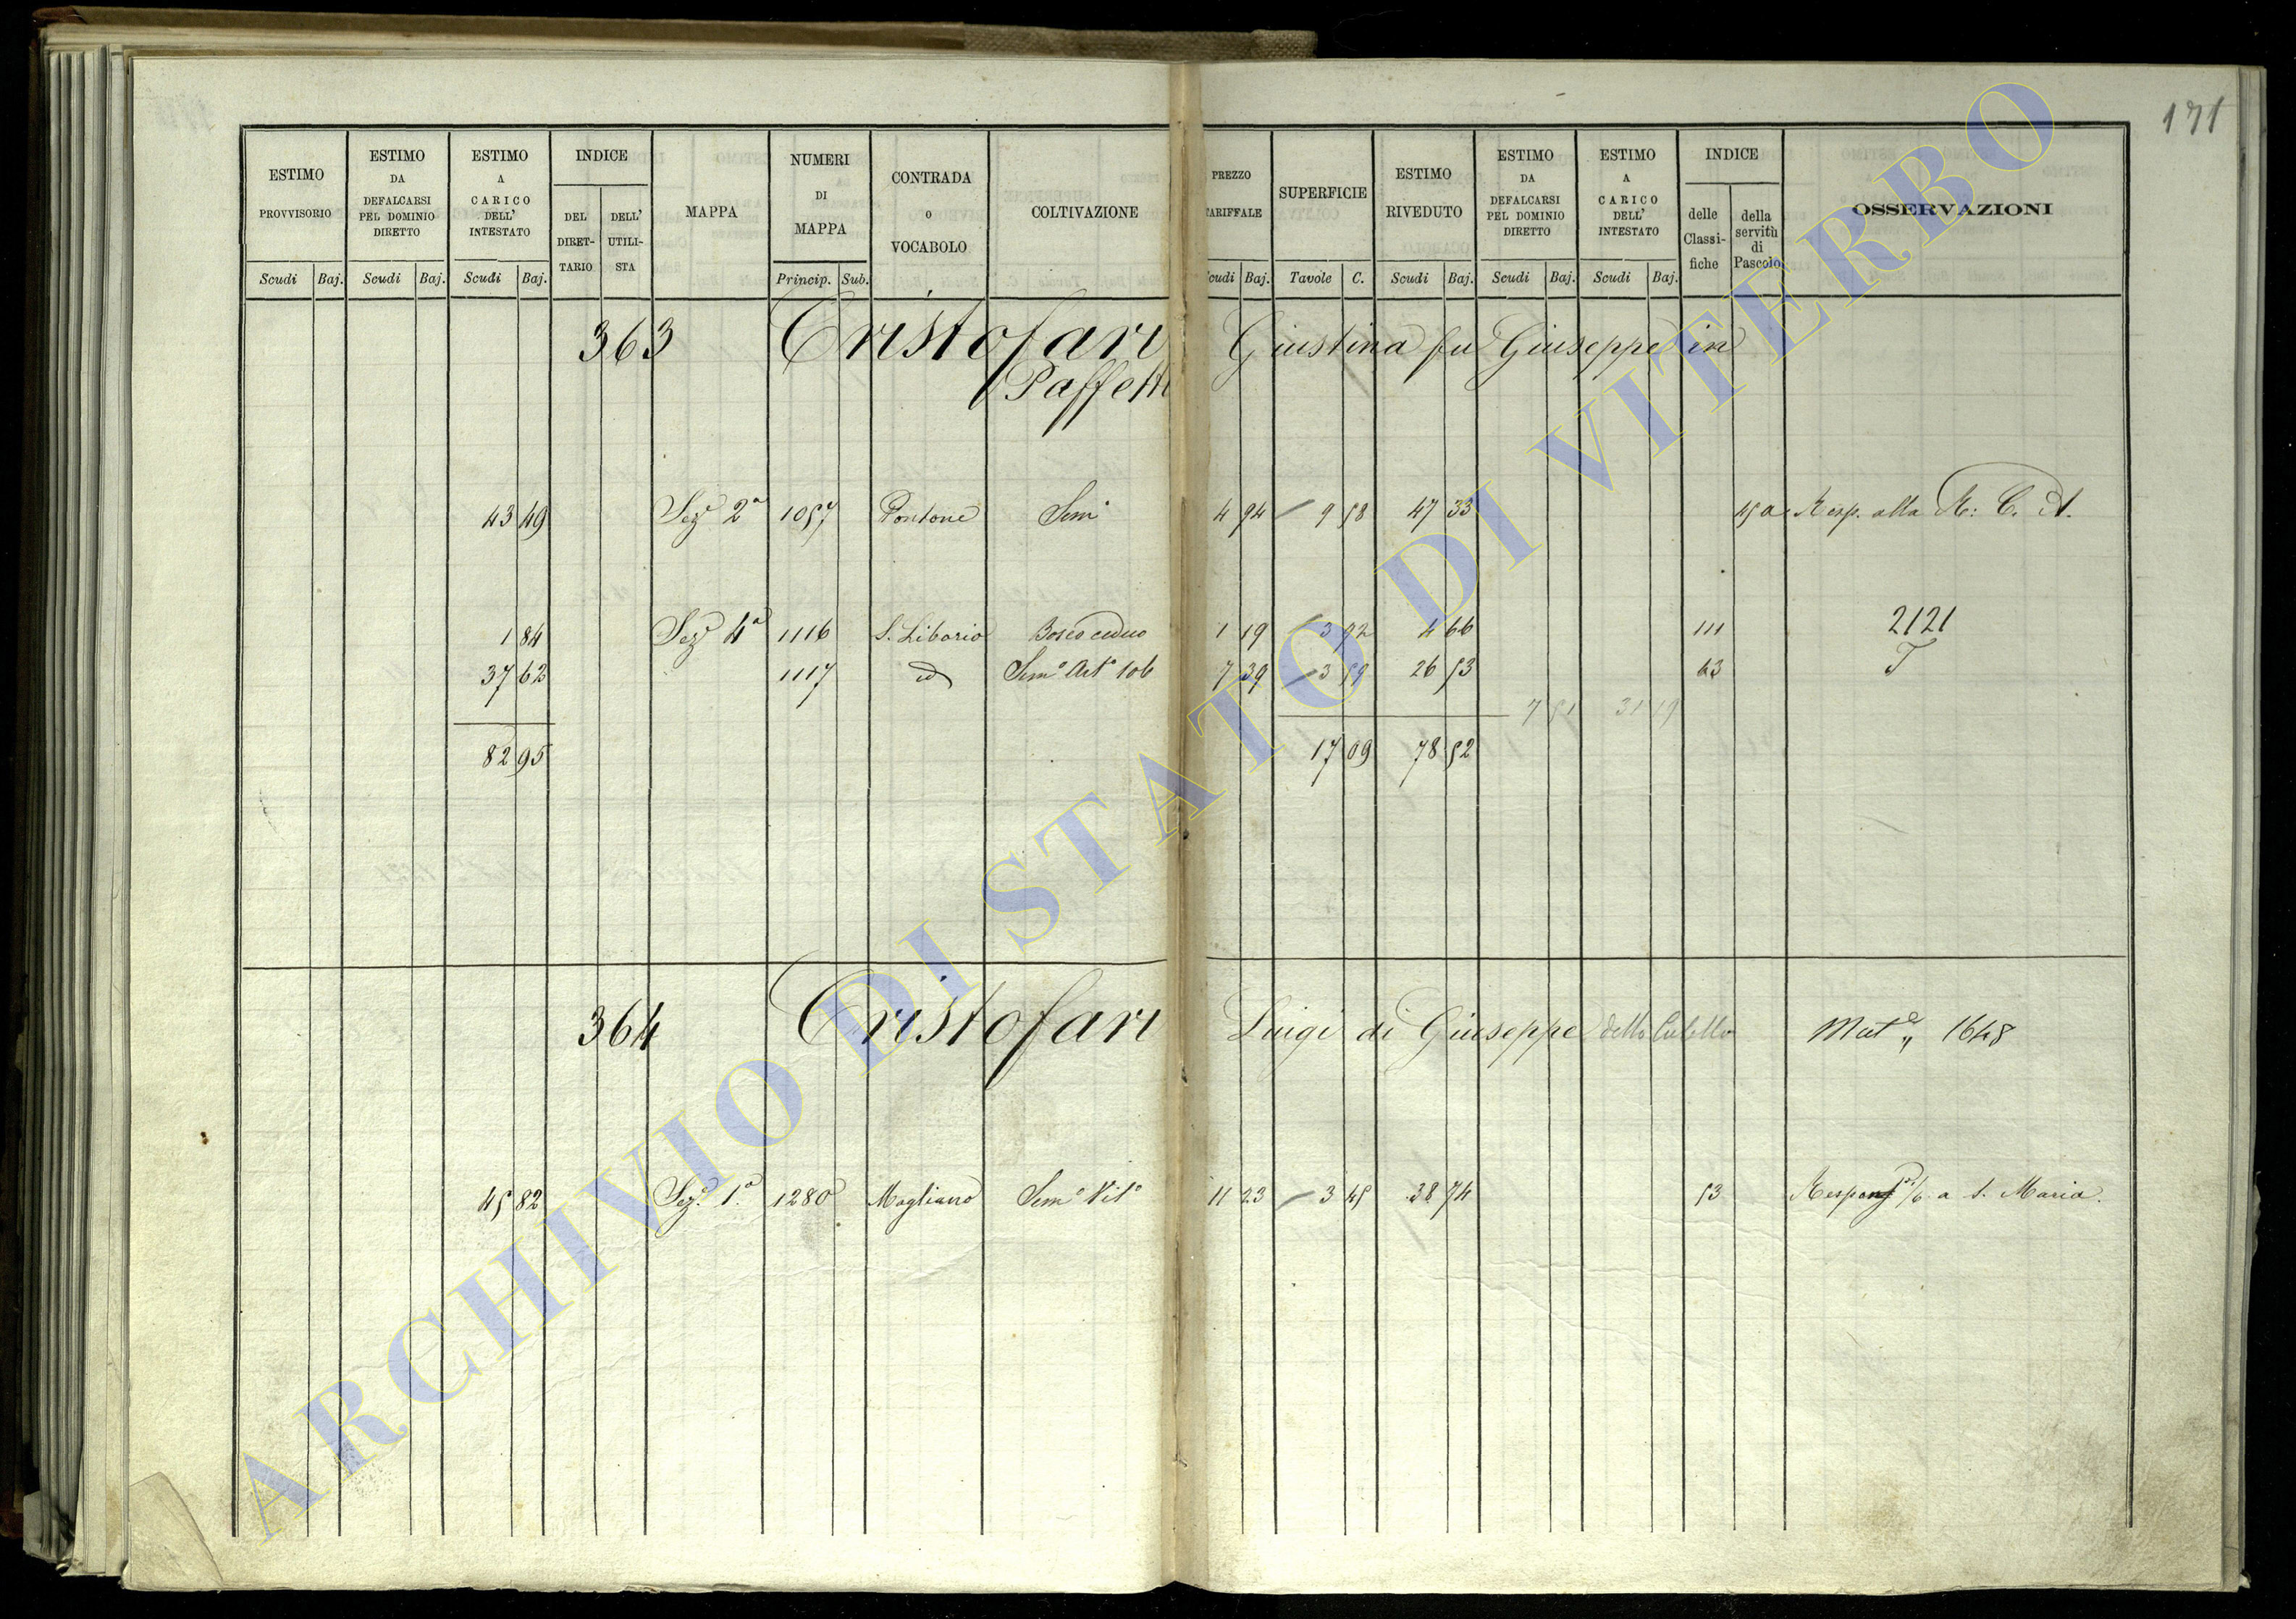 171
ESTIMO PROVVISORIO
ESTIMO DA DEFALCARSI PEL DOMINIO DIRETTO
ESTIMO A CARICO DELL' INTESTATO
INDICE
DEL DIRET-TARIO
DELL' UTILI-STA
MAPPA
NUMERI DI MAPPA
CONTRADA o VOCABOLO
COLTIVAZIONE
PREZZO TARIFFALE
SUPERFICIE
ESTIMO RIVEDUTO
ESTIMO DA DEFALCARSI PEL DOMINIO DIRETTO
ESTIMO A CARICO DELL' INTESTATO
INDICE
delle Classi-fiche
della servitù di Pascolo
OSSERVAZIONI
Scudi Baj. Scudi Baj. Scudi Baj. Princip. Sub. cudi Baj. Tavole C. Scudi Baj. Scudi Baj. Scudi Baj.
363 Cristofari Giustina fu Giuseppe in
Paffetti
43 49 Seze 2a 1057 Pontone Semo 4 94 9 58 47 33 45 a Resp. alla R: C. A.
1 84 Seze 4a 1116 S. Liborio Bosco ceduo 1 19 3 92 4 66 111 2121
37 62 1117 id Semo Arto 106 7 39 3 59 26 53 63 T
7 51 31 19
82 95 17 09 78 52
364 Cristofari Luigi di Giuseppe detto Mate 1648
45 82 Seze 1a 1280 Mogliano Semo Vito 11 23 3 45 38 74 53 a S. Maria.
ARCHIVIO DI STATO DI VITERBO